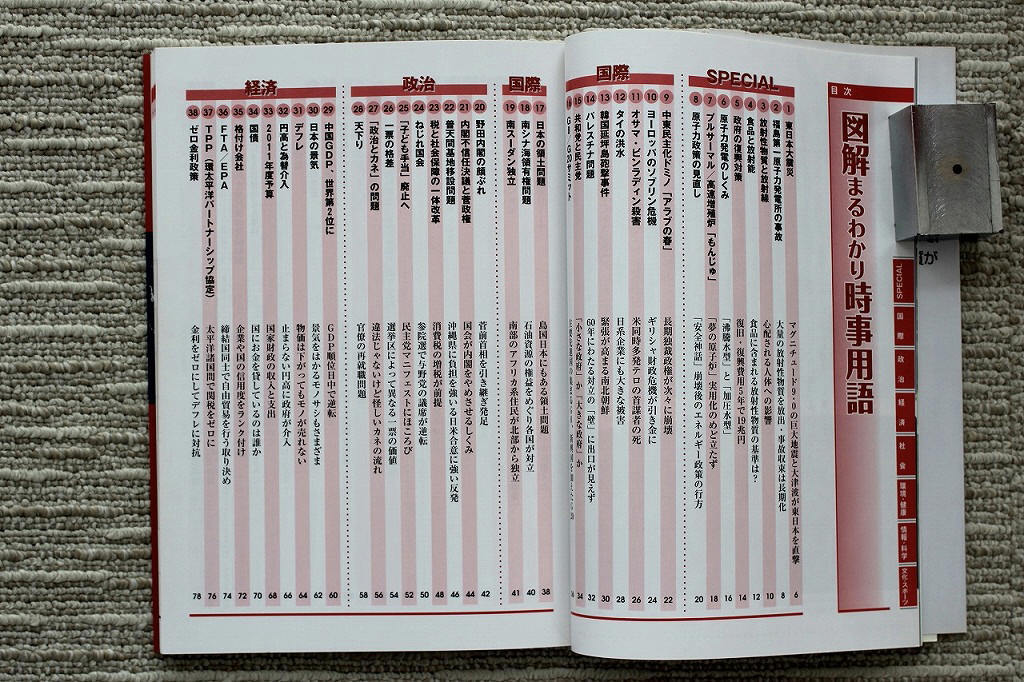 目次
図解まるわかり時事用語
SPECIAL
1 東日本大震災 マグニチュード9・0の巨大地震と大津波が東日本を直撃 6
2 福島第一原子力発電所の事故 大量の放射性物質を放出・事故収束は長期化 8
3 放射性物質と放射線 心配される人体への影響 10
4 食品と放射能 食品に含まれる放射性物質の基準は? 12
5 政府の復興対策 復旧・復興費用5年で19兆円 14
6 原子力発電のしくみ 「沸騰水型」と「加圧水型」 16
7 プルサーマル/高速増殖炉「もんじゅ」 「夢の原子炉」実用化のめど立たず 18
8 原子力政策の見直し 「安全神話」崩壊後のエネルギー政策の行方 20
国際
9 中東民主化ドミノ「アラブの春」 長期独裁政権が次々に崩壊 22
10 ヨーロッパのソブリン危機 ギリシャ財政危機が引き金に 24
11 オサマ・ビンラディン殺害 米同時多発テロの首謀者の死 26
12 タイの洪水 日系企業にも大きな被害 28
13 韓国延坪島砲撃事件 緊張が高まる南北朝鮮 30
14 パレスチナ問題 60年にわたる対立の「壁」に出口が見えず 32
15 共和党と民主党 「小さな政府」か「大きな政府」か 34
16 G8・G20サミット 36
国際
17 日本の領土問題 島国日本にもある領土問題 38
18 南シナ海領有権問題 石油資源の権益をめぐり各国が対立 40
19 南スーダン独立 南部のアフリカ系住民が北部から独立 41
政治
20 野田内閣の顔ぶれ 菅前首相を引き継ぎ発足 42
21 内閣不信任決議と菅政権 国会が内閣をやめさせるしくみ 44
22 普天間基地移設問題 沖縄県に負担を強いる日米合意に強い反発 46
23 税と社会保障の一体改革 消費税の増税が前提 48
24 ねじれ国会 参院選で与野党の議席が逆転 50
25 「子ども手当」廃止へ 民主党マニフェストにほころび 52
26 一票の格差 選挙区によって異なる一票の価値 54
27 「政治とカネ」の問題 違法じゃないけど怪しいカネの流れ 56
28 天下り 官僚の再就職問題 58
経済
29 中国GDP、世界第2位に GDP順位日中で逆転 60
30 日本の景気 景気をはかるモノサシもさまざま 62
31 デフレ 物価は下がってもモノが売れない 64
32 円高と為替介入 止まらない円高に政府が介入 66
33 2011年度予算 国家財政の収入と支出 68
34 国債 国にお金を貸しているのは誰か 70
35 格付け会社 企業や国の信用度をランク付け 72
36 FTA/EPA 締結国同士で自由貿易を行う取り決め 74
37 TPP(環太平洋パートナーシップ協定) 太平洋諸国間で関税をゼロに 76
38 ゼロ金利政策 金利をゼロにしてデフレに対抗 78
SPECIAL
国際
政治
経済
社会
環境・健康
情報・科学
文化・スポーツ